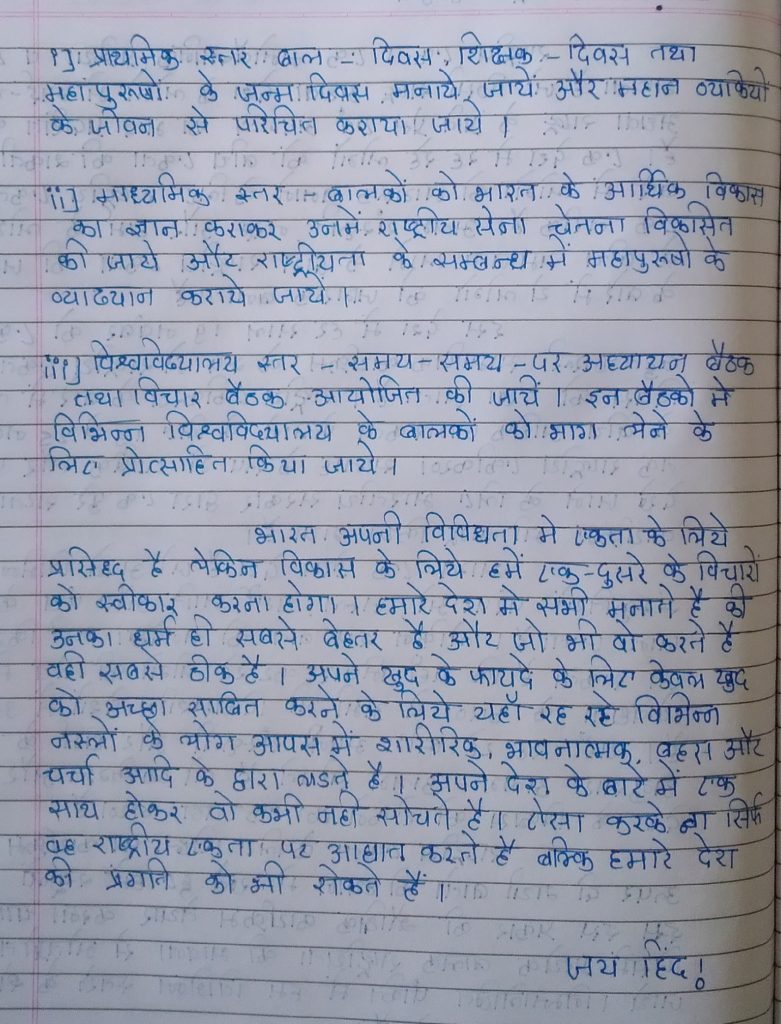 i] प्राथमिक स्तर बाल - दिवस, शिक्षक - दिवस तथा
महापुरूषों के जन्म दिवस मनाये जायें और महान व्यकियो
के जीवन से परिचित कराया जाये।
ii] माध्यमिक स्तर - बालकों को भारत के आर्थिक विकास
का ज्ञान कराकर उनमें राष्ट्रीय सेना चेतना विकासित
की जाये और राष्ट्रीयता के सम्बन्ध में महापुरूषो के
व्याख्यान कराये जाये।
iii] विश्वविद्यालय स्तर - समय-समय-पर अध्यायन बैठक
तथा विचार बैठक आयोजित की जायें। इन बैठको मे
विभिन्न विश्वविद्यालय के बालकों को भाग लेने के
लिए प्रोत्साहित किया जाये।
भारत अपनी विविधता मे एकता के लिये
प्रसिध्द है लेकिन विकास के लिये हमें एक-दुसरे के विचारों
को स्वीकार करना होगा। हमारे देश मे सभी मनाते है की
उनका धर्म ही सबसे बेहतर है और जो भी वो करते है
वही सबसे ठीक है। अपने खुद के फायदे के लिए केवल खुद
को अच्छा साबित करने के लिये यहाँ रह रहे विभिन्न
नस्लों के लोग आपस में शारीरिक, भावनात्मक, बहस और
चर्चा आदि के द्वारा लडते है। अपने देश के बारे में एक
साथ होकर वो कभी नही सोचते है। ऐसा करके ना सिर्फ
वह राष्ट्रीय एकता पर आघात करते है बल्कि हमारे देश
की प्रगति को भी रोकते हैं।
जय हिंद!